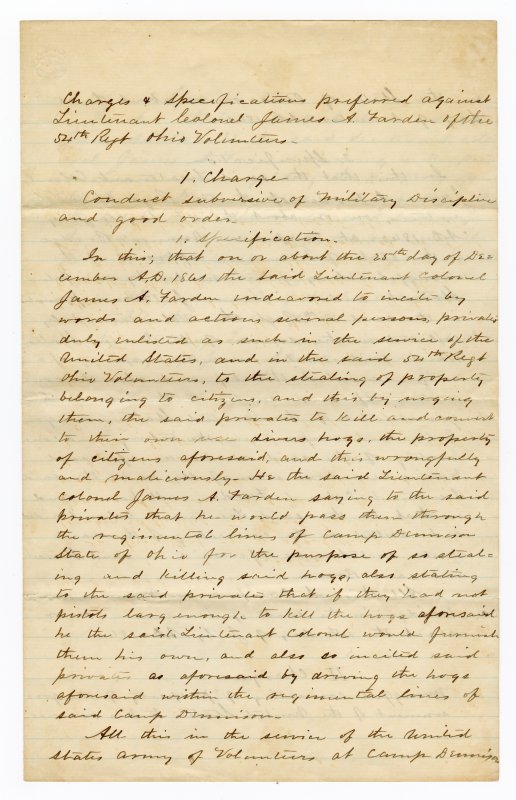 Charges & Specifications preferred against
Lieutenant Colonel James A. Farden of the
52th Regt Ohio Volunteers.
1. Charge
Conduct subversive of Military Discipline
and good order.
1. Specification.
In this; that on or about the 25th day of Dec-
ember A.D. 1861 the said Lieutenant Colonel
James A. Farden endeavored to incite by
words and actions several persons, privates
duly enlisted as such in the service of the
United States, and in the said 52th Regt
Ohio Volunteers, to the stealing of property
belonging to citizens, and this by urging
them, the said privates to kill and convert
to their own use divers hogs, the property
of citizens aforesaid, and this wrongfully
and maliciously. He the said Lieutenant
Colonel James A. Farden saying to the said
privates that he would pass them through
the regimental lines of Camp Dennison
State of Ohio for the purpose of so steal-
ing and killing said hogs, also stating
to the said privates that if they had not
pistols larg enough to kill the hogs aforesaid
he the said Lieutenant Colonel would furnish
them his own, and also so incited said
privates as aforesaid by driving the hogs
aforesaid within the regimental lines of
said Camp Dennison.
All this in the service of the United
States army of Volunteers at Camp Dennison